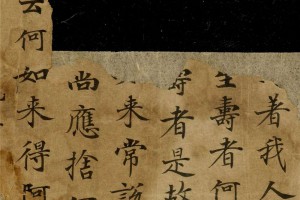 著我人
生壽者何
壽者是故
来常說
尚應捨何
云何如来得阿